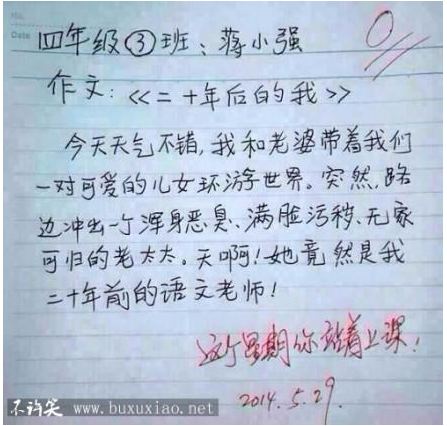 No.
Date
四年级③班：蒋小强
0
作文：《二十年后的我》
今天天气不错，我和老婆带着我们
一对可爱的儿女环游世界。突然，路
边冲出一个浑身恶臭、满脸污秽、无家
可归的老太太。天啊！她竟然是我
二十年前的语文老师！
这个星期你站着上课！
2014.5.29.
不许笑 www.buxuxiao.net